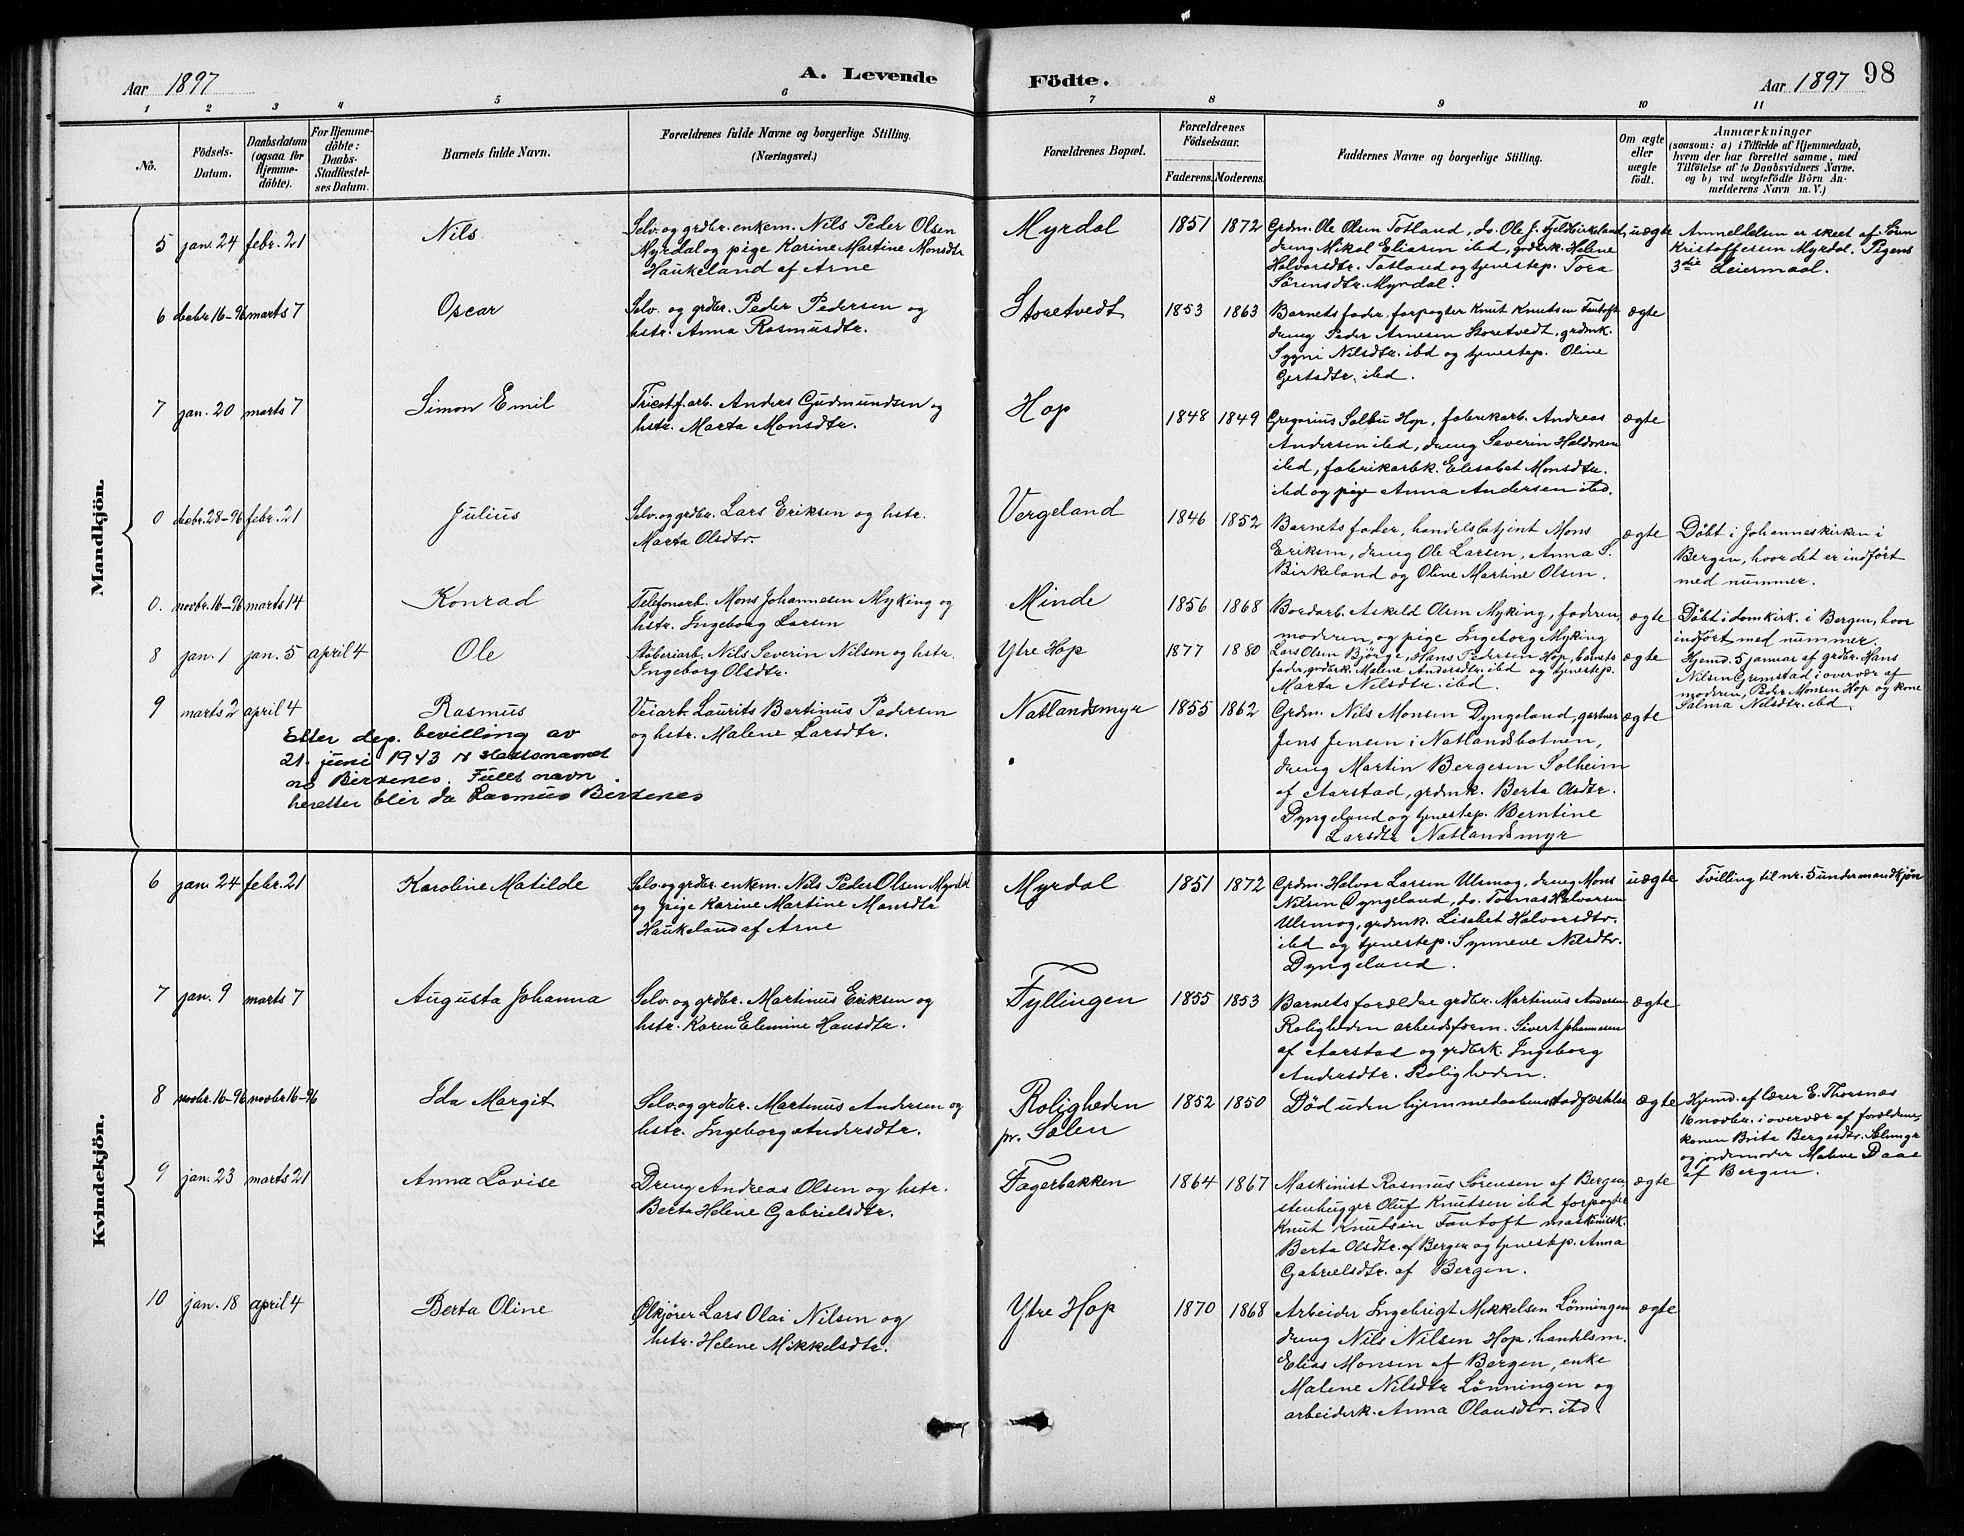 Aar 1897
A. Levende
Födte.
Aar 1897
98
1 2 3 4 5 6 7 8 9 10 11
No.
Födsels-
Datum.
Daabsdatum
(ogsaa for
Hjemme-
döbte).
For Hjemme-
döbte:
Daabs-
Stadfæstel-
ses Datum.
Barnets fulde Navn.
Forældrenes fulde Navne og borgerlige Stilling.
(Næringsvei.)
Forældrenes Bopæl.
Forældrenes
Födselsaar.
Faderens. Moderens.
Faddernes Navne og borgerlige Stilling.
Om ægte
eller
uægte
födt.
Anmærkninger
(saasom: a) i Tilfælde af Hjemmedaab,
hvem der har forrettet samme, med
Tilföielse af to Daabsvidners Navne,
og b) ved uægtefödte Börn An-
melderens Navn m. V.)
Mandkjön.
5 jan. 24 febr. 21
Nils
Selv. og grdbr. enkem. Nils Peder Olsen
Myrdal og pige Karine Martine Monsdtr
Haukeland af Arne
Myrdal
1851 1872
Grdm. Ole Olsen Totland, do. Ole J. Fjeldbirkeland,
dreng Nikol Eliasen ibd, grdbrk. Helene
Halvorsdtr. Totland og tjenestep. Tora
Sörensdtr. Myrdal.
uægte
Anmeldelsen er skeet af Sören
Kristoffersen Myrdal. Pigens
3die Leiermaal.
6 decbr. 16-96 marts 7
Oscar
Selv. og grdbr. Peder Pedersen og
hstr. Anna Rasmusdtr.
Storetvedt
1853 1863
Barnets fader, forpagter Knut Knutsen Fantoft
dreng Peder Arnesen Storetvedt, grdmk.
Sygni Nilsdtr. ibd og tjenestep. Oline
Gertsdtr. ibd.
ægte
7 jan. 20 marts 7
Simon Emil
Tricotf.arb. Anders Gudmundsen og
hstr. Marta Monsdtr.
Hop
1848 1849
Gregorius Solbu Hop, fabrikarb. Andreas
Andersen ibd, dreng Severin Haldorsen
ibd, fabrikarbk. Elisabet Monsdtr.
ibd og pige Anna Andersen ibd.
ægte
0 decbr. 28-96 febr. 21
Julius
Selv. og grdbr. Lars Eriksen og hstr.
Marta Olsdtr.
Vergeland
1846 1852
Barnets fader, handelsbetjent Mons
Eriksen, dreng Ole Larsen, Anna S.
Birkeland og Oline Martine Olsen.
ægte
Döbt i Johanneskirken i
Bergen, hvor det er indfört
med nummer.
0. novbr. 16-96 marts 14
Konrad
Telefonarb. Mons Johannesen Myking og
hstr. Ingeborg Larsen
Minde
1856 1868
Bordarb. Askeld Olsen Myking, faderen,
moderen, og pige Ingeborg Myking
ægte
Döbt i domkirk. i Bergen, hvor
indfört med nummer.
8 jan. 1 jan. 5 april 4
Ole
Stöberiarb. Nils Severin Nilsen og hstr.
Ingeborg Olsdtr.
Ytre Hop
1877 1880
Lars Olsen Björge, Hans Pedersen Hop, barnets
fader, grdbrk. Malene Andersdtr. ibd og tjenestep.
Marta Nilsdtr. ibd.
ægte
Hjemd. 5 januar af grdbr. Hans
Nilsen Grimstad i overvær af
moderen, Peder Monsen Hop og kone
Salma Nilsdtr. ibd.
9 marts 2 april 4
Rasmus
Veiarb. Laurits Bertinus Pedersen
og hstr. Malene Larsdtr.
Natlandsmyr
1855 1862
Grdm. Nils Monsen Dyngeland, gartner
Jens Jensen i Natlandsbotnen,
dreng Martin Bergesen Solheim
af Aarstad, grdmk. Berta Olsdtr.
Dyngeland og tjenestep. Berntine
Larsdtr Natlandsmyr
ægte
Etter dep. bevilling av
21. juni 1943
Birkenes. Fullt navn
heretter blir da Rasmus Birkenes
Kvindekjön.
6 jan. 24 febr. 21
Karoline Matilde
Selv. og grdbr. enkem. Nils Peder Olsen Myrdal
og pige Karine Martine Monsdtr
Haukeland af Arne
Myrdal
1851 1872
Grdm. Halvor Larsen Ulsmog, dreng Mons
Nilsen Dyngeland, do. Tomas Halvorsen
Ulsmog, grdmk. Lisabet Halvorsdtr.
ibd og tjenestep. Synneve Nilsdtr.
Dyngeland.
uægte
Tvilling til nr. 5 under mandkjön
7 jan. 9 marts 7
Augusta Johanna
Selv. og grdbr. Martinus Eriksen og
hstr. Karen Elemine Hansdtr.
Fyllingen
1855 1853
Barnets forældre grdbr. Martinus Andersen
Roligheden arbeidsform. Sivert Johannesen
af Aarstad og grdbrk. Ingeborg
Andersdtr. Roligheden.
ægte
8 novbr. 16-96 novbr. 16-96
Ida Margit
Selv. og grdbr. Martinus Andersen og
hstr. Ingeborg Andersdtr.
Roligheden
pr. Sælen
1852 1850
Död uden hjemmedaabens stadfæstelse
ægte
Hjemd. af lærer E. Thorsnæs
16 novbr. i overvær af forældrene,
konen Brita Bergesdtr. Sælemyr
og jordemoder Malene Daae
af Bergen.
9 jan. 23 marts 21
Anna Lovise
Dreng Andreas Olsen og hstr.
Berta Helene Gabrielsdtr.
Fagerbakken
1864 1867
Maskinist Rasmus Sörensen af Bergen,
stenhugger Oluf Knutsen ibd forpagter
Knut Knutsen Fantoft maskinistk.
Berta Olsdtr. af Bergen og tjenestep. Anna
Gabrielsdtr. af Bergen.
ægte
10 jan. 18 april 4
Berta Oline
Ölkjörer Lars Olai Nilsen og
hstr. Helene Mikkelsdtr.
Ytre Hop
1870 1868
Arbeider Ingebrigt Mikkelsen Lönningen
dreng Nils Nilsen Hop, handelsm.
Elias Monsen af Bergen, enke
Malene Nilsdtr Lönningen og
arbeiderk. Anna Olausdtr. ibd.
ægte